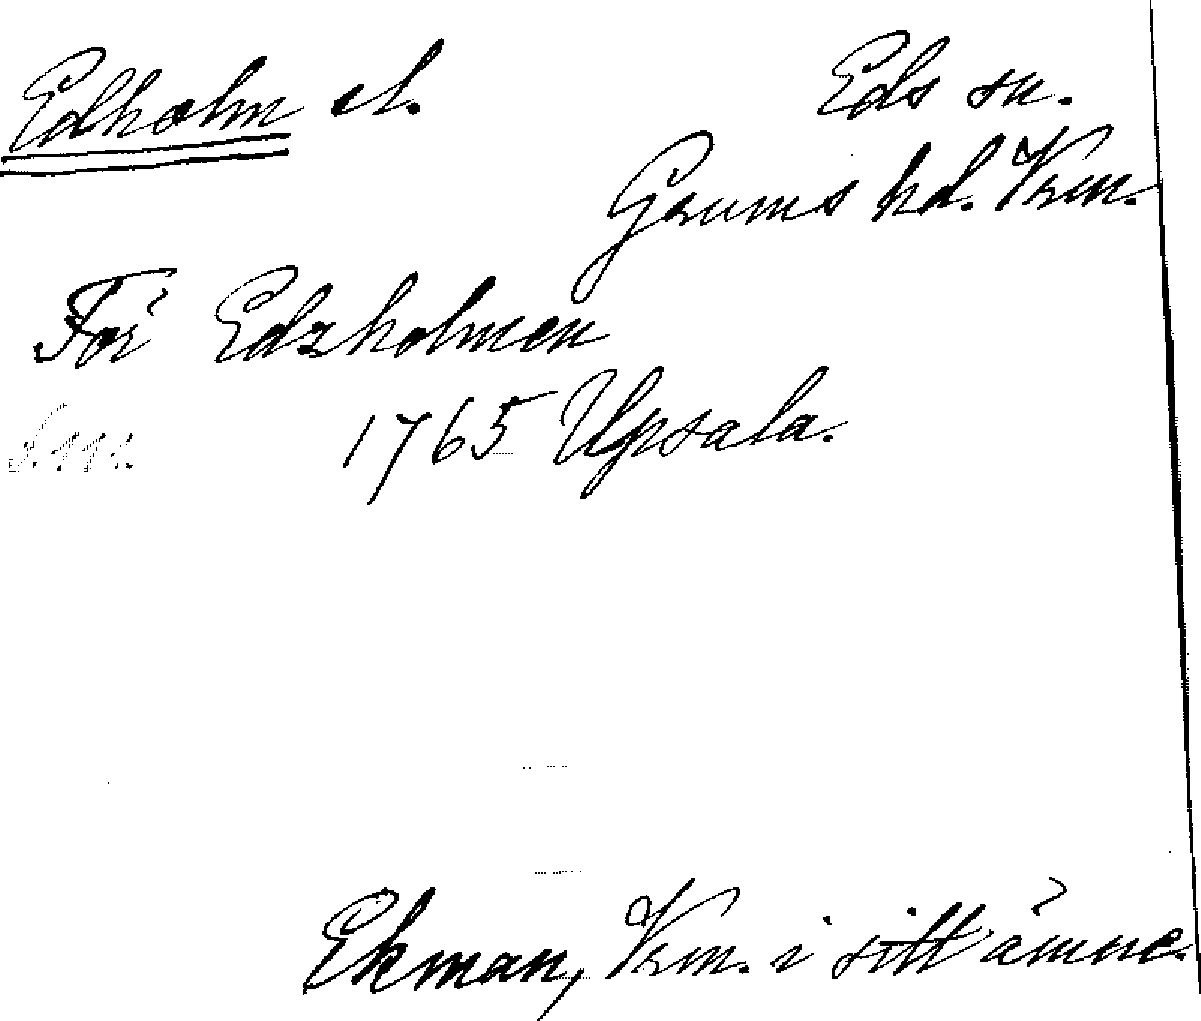 Edholm el. Eds sn.
Grums hd. Vrm.
För Edzholmen
1765 Upsala.
Ekman, Vrm. i sitt ämne.